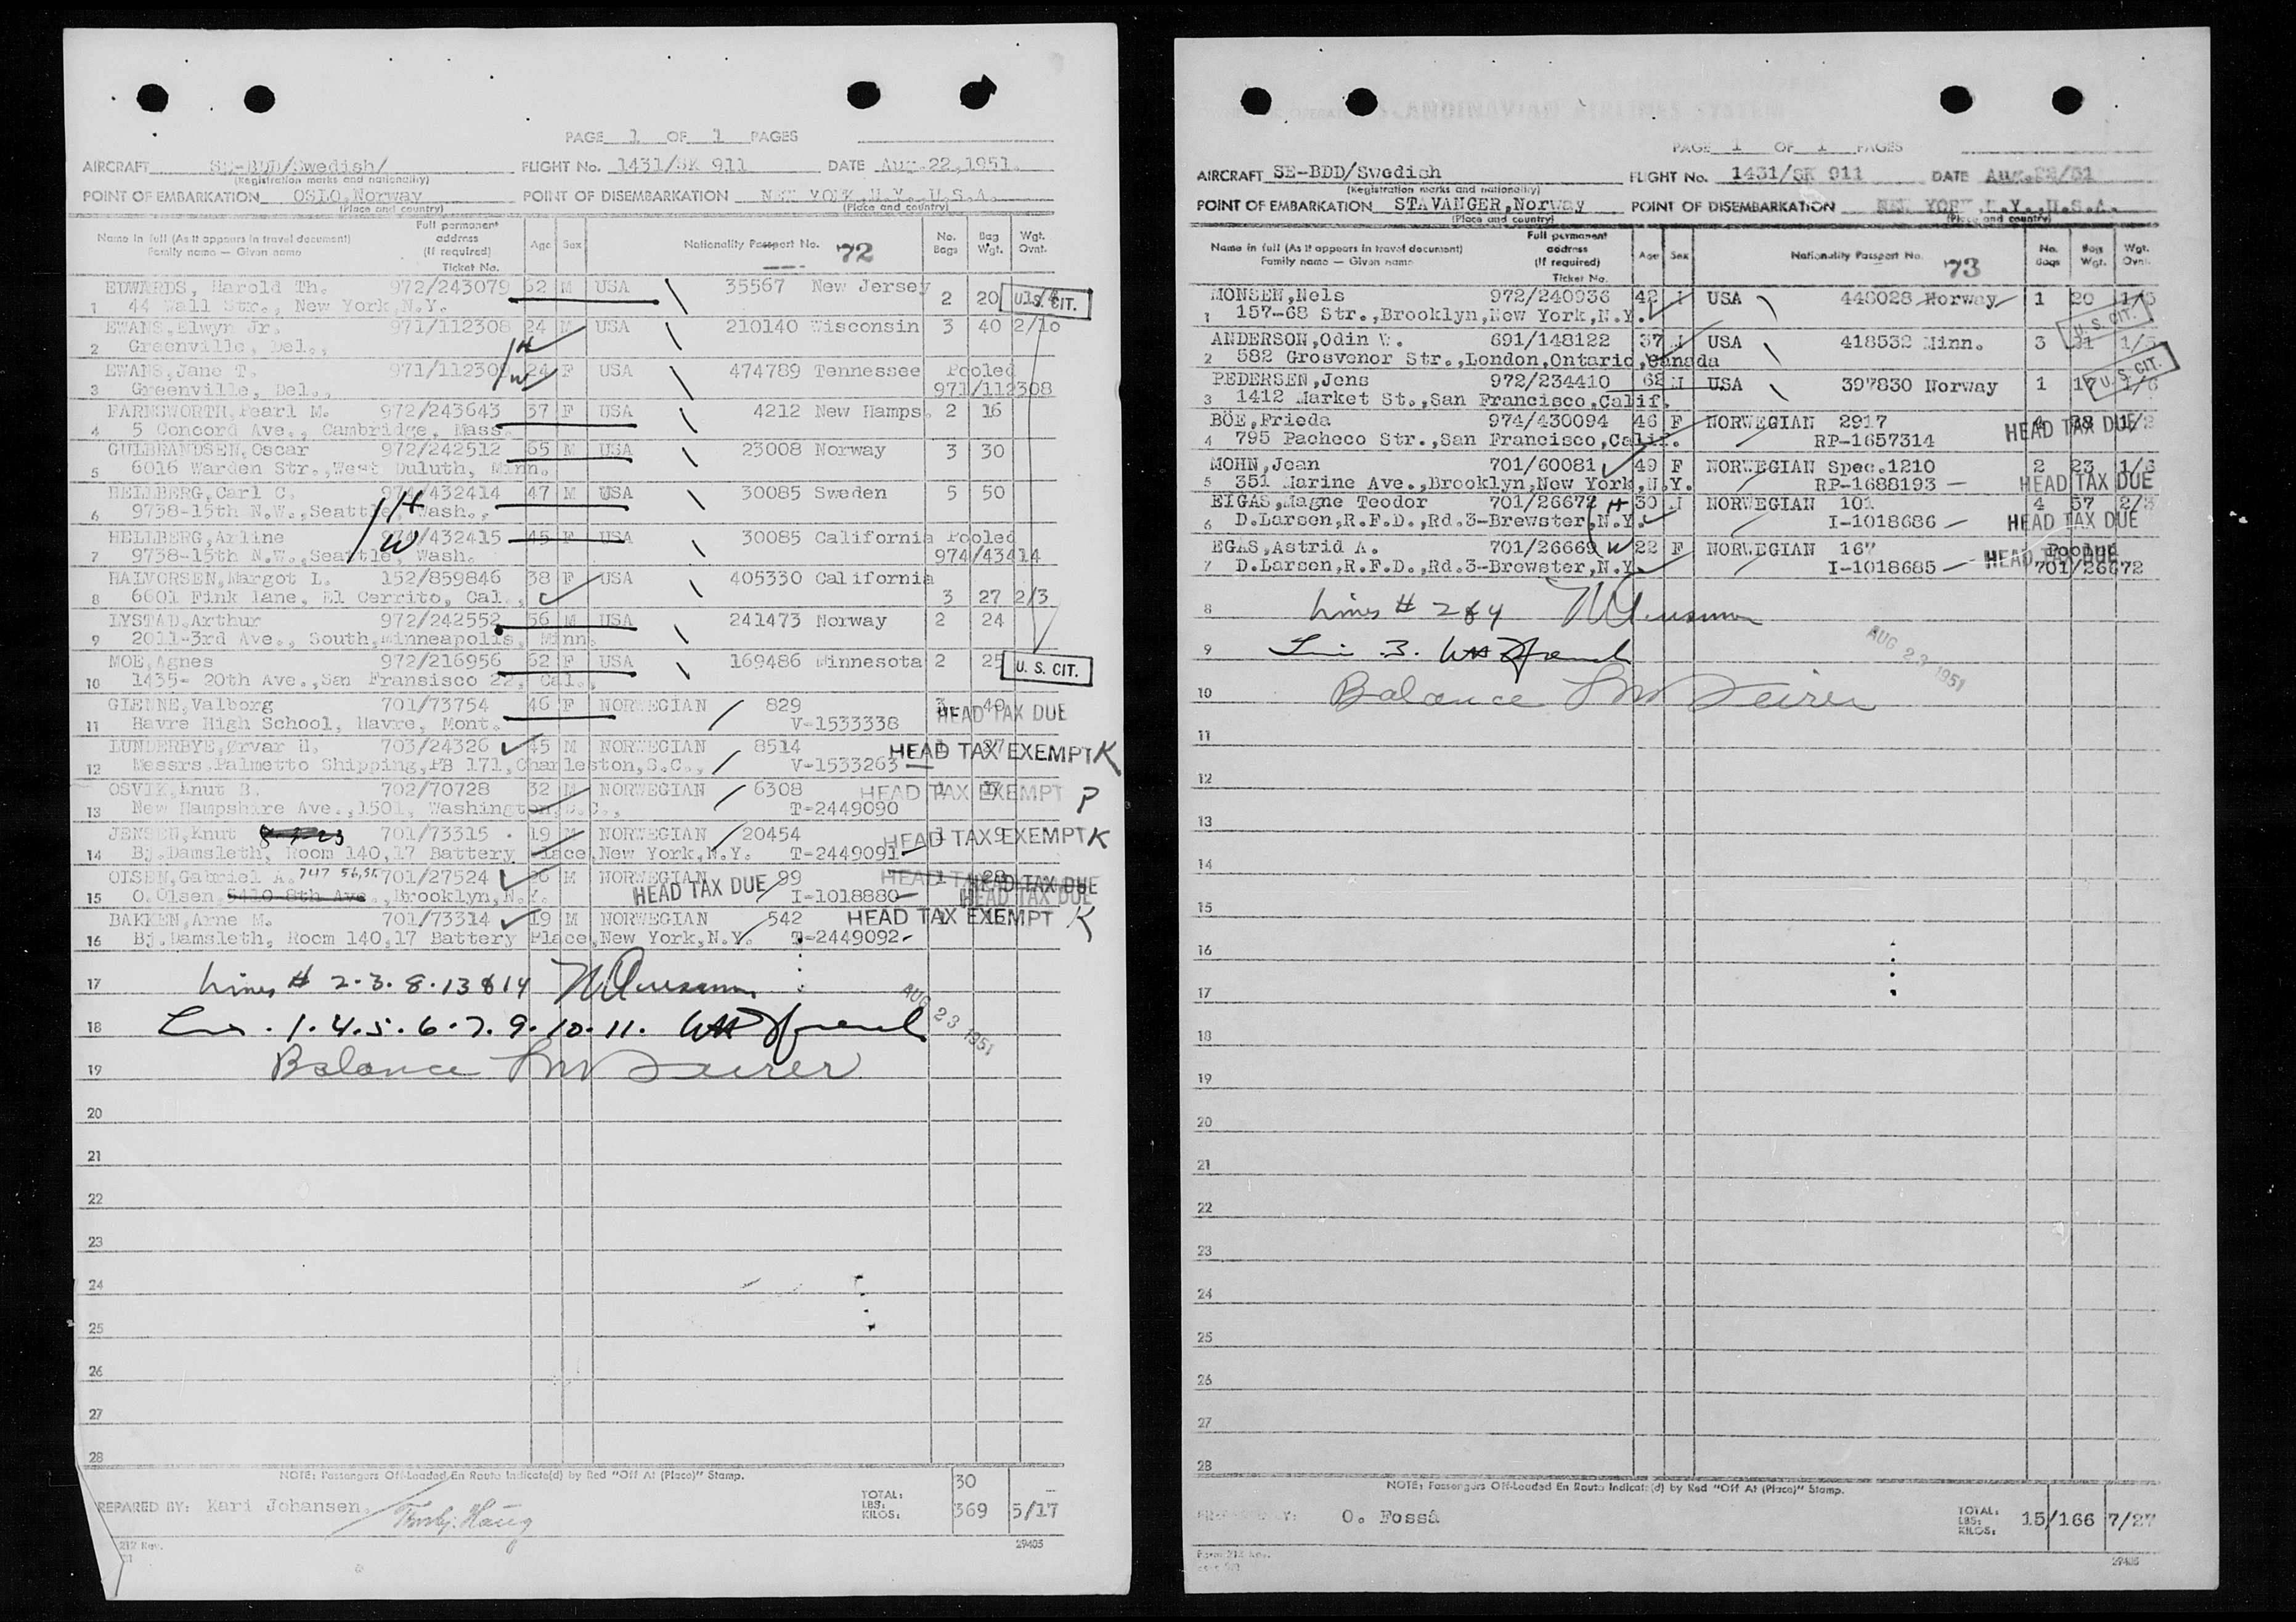 PAGE 1 OF 1 PAGES
AIRCRAFT SE-BDD/Swedish/ FLIGHT No. 1431/SK 911 DATE Aug.22,1951.
(Registration marks and nationality)
POINT OF EMBARKATION OSLO,Norway POINT OF DISEMBARKATION NEW YORK,N.Y.,U.S.A.
(Place and country) (Place and country)
Name in full (As it appears in travel document) Family name — Given name Full permanent address (If required) Ticket No. Age Sex Nationality Passport No. 72 No. Bags Bag Wgt. Wgt. Ovnt.
EDWARDS, Harold Th. 972/243079 62 M USA 35567 New Jersey 2 20 U.S. CIT.
1 44 Wall Str., New York,N.Y.
EWANS,Elwyn Jr. 971/112308 24 M USA 210140 Wisconsin 3 40 2/10
2 Greenville, Del., H
EWANS,Jane T. 971/112309 24 F USA 474789 Tennessee Pooled
3 Greenville, Del., W 971/112308
FARNSWORTH,Pearl M. 972/243643 37 F USA 4212 New Hamps. 2 16
4 5 Concord Ave., Cambridge, Mass.
GULBRANDSEN,Oscar 972/242512 65 M USA 23008 Norway 3 30
5 6016 Warden Str.,West Duluth, Minn.
HELLBERG,Carl C. 974/432414 47 M USA 30085 Sweden 5 50
6 9738-15th N.W.,Seattle, Wash., H
HELLBERG,Arline 974/432415 45 F USA 30085 California Pooled
7 9738-15th N.W.,Seattle, Wash. W 974/43414
HALVORSEN,Margot L. 152/859846 38 F USA 405330 California
8 6601 Fink lane, El Cerrito, Cal., 3 27 2/3
LYSTAD,Arthur 972/242552 56 M USA 241473 Norway 2 24
9 2011-3rd Ave., South,Minneapolis, Minn.
MOE,Agnes 972/216956 62 F USA 169486 Minnesota 2 25 U. S. CIT.
10 1435- 20th Ave.,San Fransisco 22, Cal.,
GIENNE,Valborg 701/73754 46 F NORWEGIAN 829 3 40 HEAD TAX DUE
11 Havre High School, Havre, Mont. V-1533338
LUNDERBYE,Ørvar H. 703/24326 45 M NORWEGIAN 8514 HEAD TAX EXEMPT K
12 Messrs.Palmetto Shipping,PB 171,Charleston,S.C., V-1533263
OSVIK,Knut B. 702/70728 32 M NORWEGIAN 6308 HEAD TAX EXEMPT P
13 New Hampshire Ave.,1501, Washington,D.C., T-2449090
JENSEN,Knut 701/73315 19 M NORWEGIAN 20454 1 9 HEAD TAX EXEMPT K
14 Bj.Damsleth, Room 140,17 Battery Place,New York,N.Y. T-2449091
OLSEN,Gabriel A. 747 56,St. 701/27524 M NORWEGIAN 99 1 28 HEAD TAX DUE
15 O.Olsen,5410-8th Ave.,Brooklyn,N.Y. HEAD TAX DUE I-1018880 HEAD TAX DUE
BAKKEN,Arne M. 701/73314 19 M NORWEGIAN 542 HEAD TAX EXEMPT K
16 Bj.Damsleth, Room 140,17 Battery Place,New York,N.Y. T-2449092
17 Lines # 2.3.8.13 & 14
18 1.4.5.6.7.9.10.11. AUG 23 1951
19 Balance
20
21
22
23
24
25
26
27
28
NOTE: Passengers Off-Loaded En Route Indicate(d) by Red "Off At (Place)" Stamp.
30
PREPARED BY: Kari Johansen. TOTAL: LBS: KILOS: 369 5/17
212 Rev. 29405
SCANDINAVIAN AIRLINES SYSTEM
PAGE 1 OF 1 PAGES
AIRCRAFT SE-BDD/Swedish FLIGHT No. 1431/SK 911 DATE Aug.22/51
(Registration marks and nationality)
POINT OF EMBARKATION STAVANGER,Norway POINT OF DISEMBARKATION NEW YORK,N.Y.,U.S.A.
(Place and country) (Place and country)
Name in full (As it appears in travel document) Family name — Given name Full permanent address (If required) Ticket No. Age Sex Nationality Passport No. 73 No. Bags Bags Wgt. Wgt. Ovnt.
MONSEN,Nels 972/240936 42 M USA 448028 Norway 1 20 1/6
1 157-68 Str.,Brooklyn,New York,N.Y. U. S. CIT.
ANDERSON,Odin W. 691/148122 37 M USA 418532 Minn. 3 21 1/5
2 582 Grosvenor Str.,London,Ontario,Canada
PEDERSEN,Jens 972/234410 62 M USA 397830 Norway 1 17 1/6 U. S. CIT.
3 1412 Market St.,San Francisco,Calif.
BÖE,Frieda 974/430094 46 F NORWEGIAN 2917 4 28 1/2 HEAD TAX DUE
4 795 Pacheco Str.,San Francisco,Calif. RP-1657314
MOHN,Jean 701/60081 49 F NORWEGIAN Spec.1210 2 23 1/6
5 351 Marine Ave.,Brooklyn,New York,N.Y. RP-1688193 HEAD TAX DUE
EIGAS,Magne Teodor 701/26672 H 30 M NORWEGIAN 101 4 57 2/3
6 D.Larsen,R.F.D.,Rd.3-Brewster,N.Y. I-1018686 HEAD TAX DUE
EGAS,Astrid A. 701/26669 W 22 F NORWEGIAN 167 Pooled
7 D.Larsen,R.F.D.,Rd.3-Brewster,N.Y. I-1018685 HEAD TAX DUE 701/26672
8 Lines # 2 & 4
9 3. AUG 23 1951
10 Balance
11
12
13
14
15
16
17
18
19
20
21
22
23
24
25
26
27
28
NOTE: Passengers Off-Loaded En Route Indicate(d) by Red "Off At (Place)" Stamp.
PREPARED BY: O. Fosså TOTAL: LBS: KILOS: 15/166 7/27
Form 212 Rev. 29405